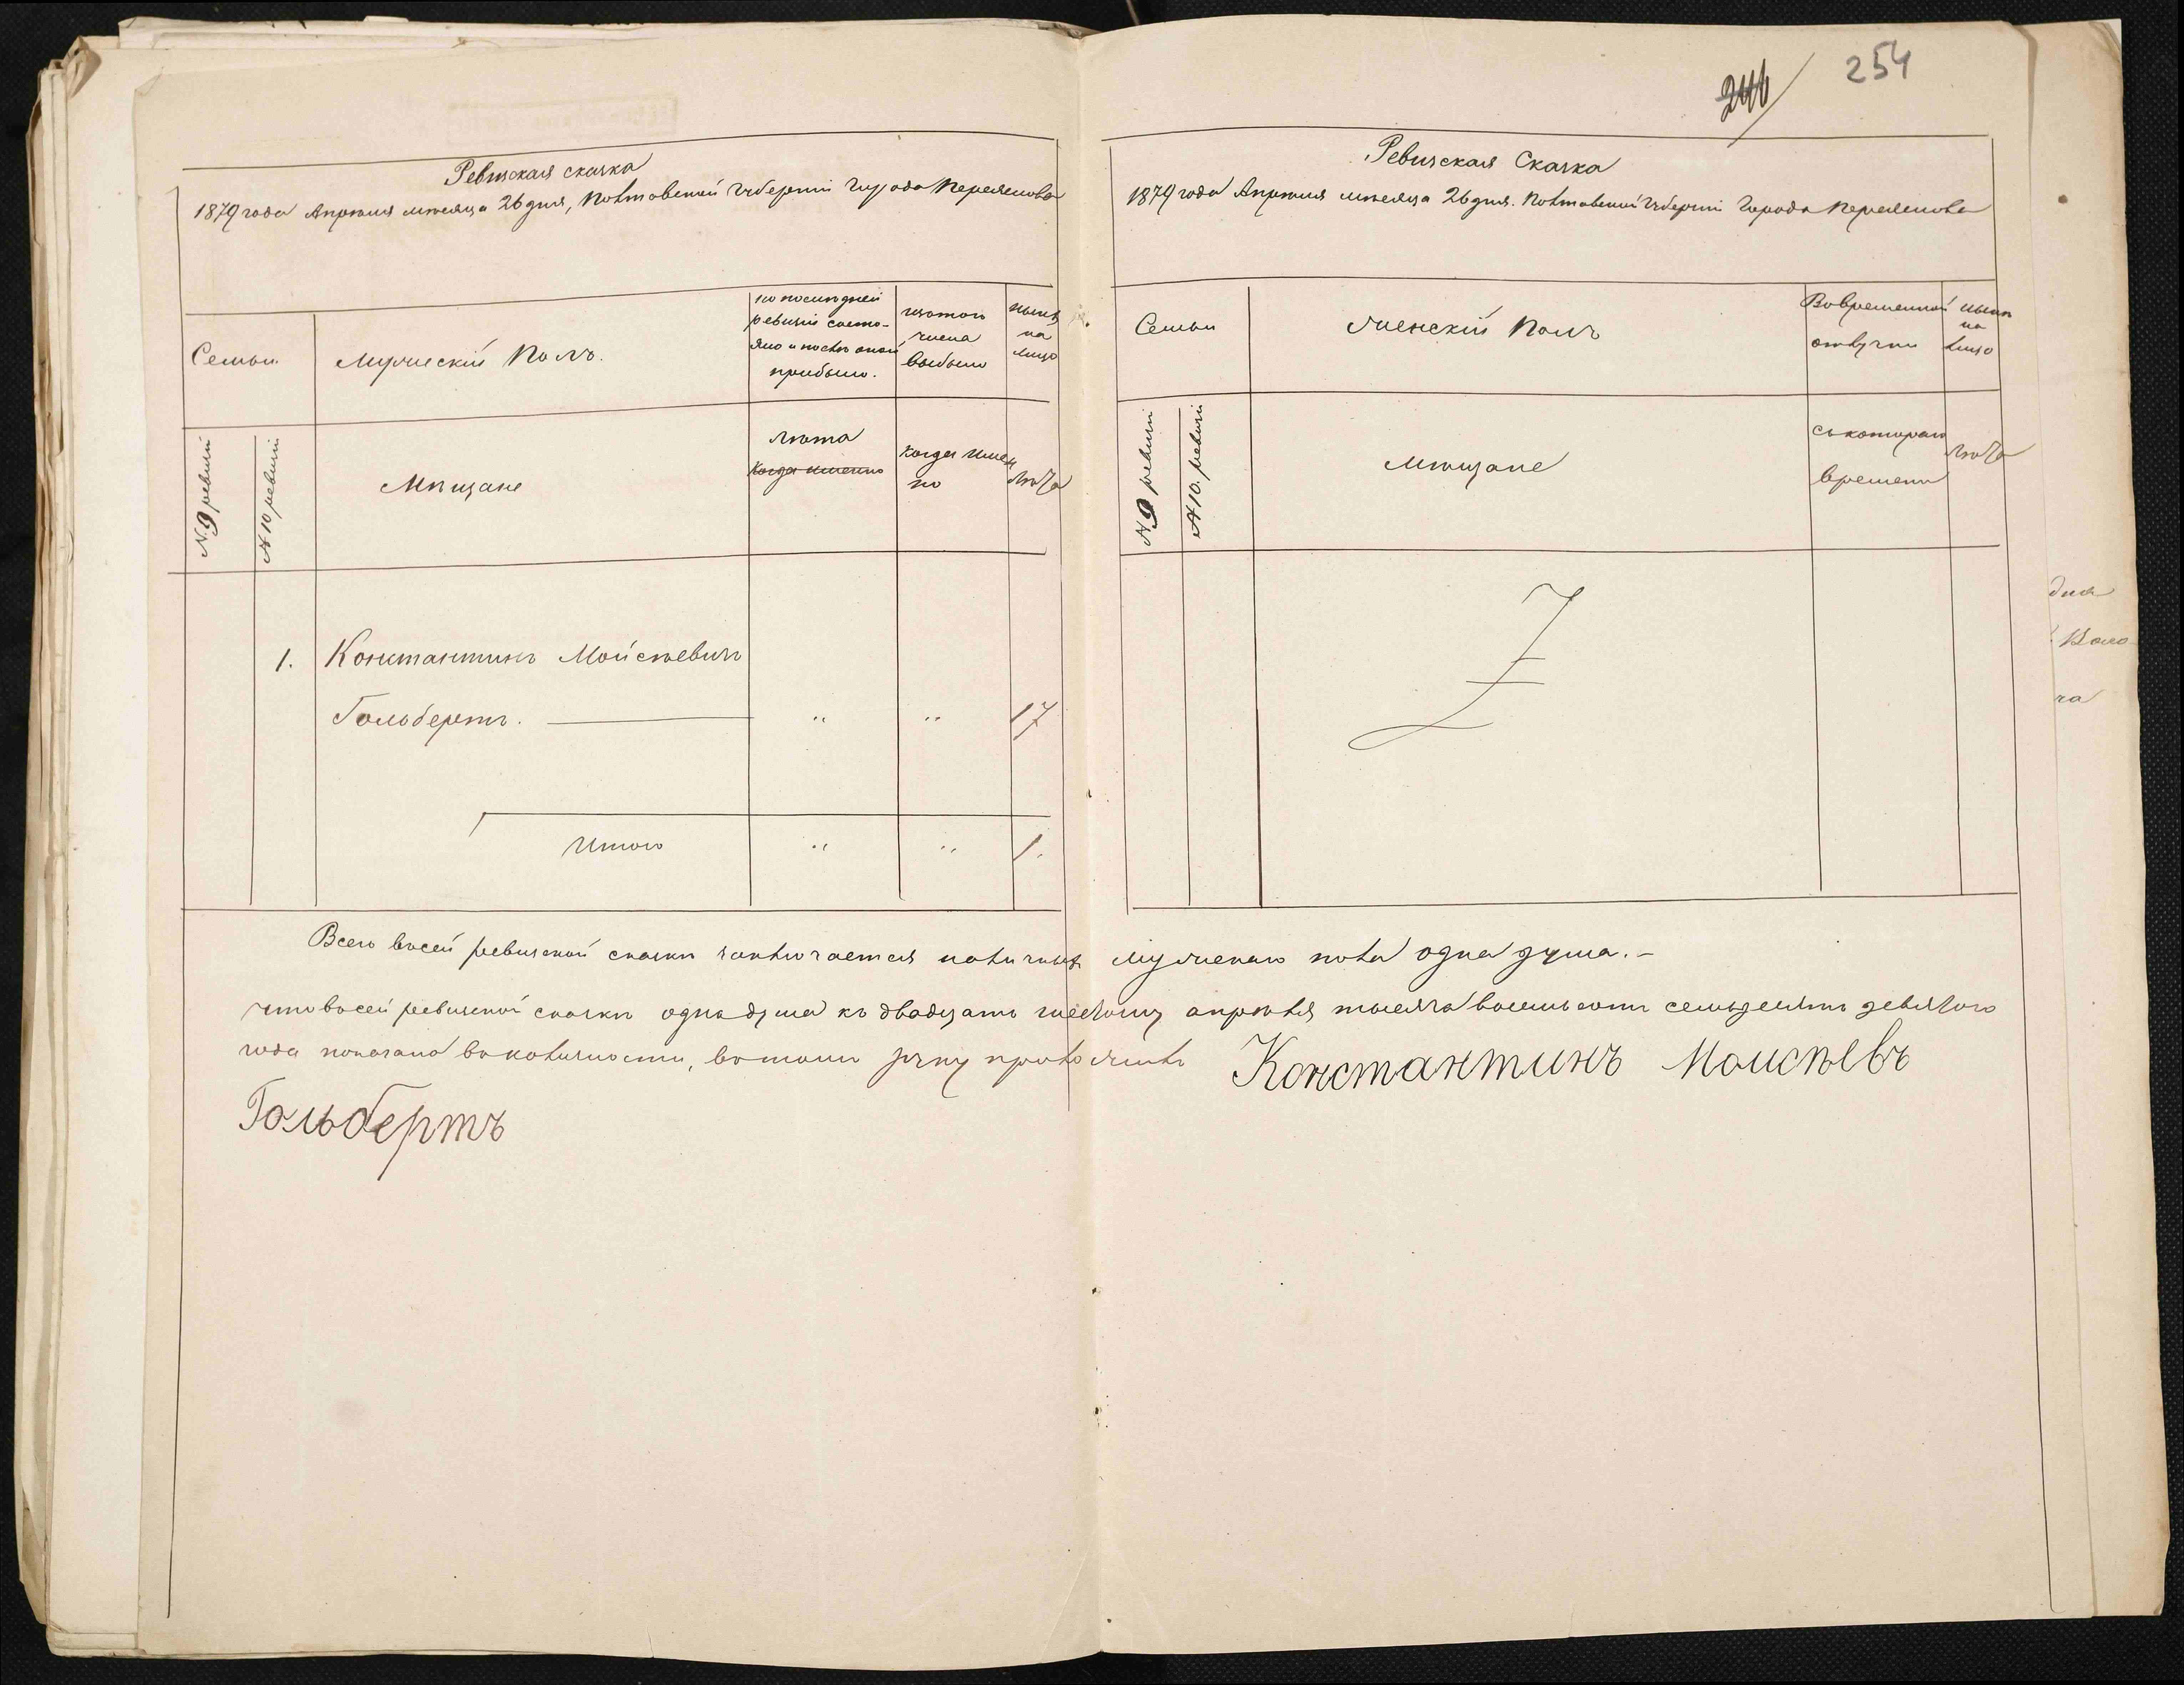 Ревизская сказка
1879 года Апрѣля мѣсяца 26 дня, Полтавской Губерніи Города Переяслова
Семьи
Мужескій Полъ.
по последней
ревизіи состо-
яло и послѣ оной
прибыло.
изъ того
числа
выбыло
нынѣ
на
лицо
N. 9 ревизіи
N 10 ревизіи
Мѣщане
лѣта
когда именно
когда имен
но
лѣта
1. Константинъ Мойсѣевичъ
Гольбертъ. — " " 17
Итого " " 1.
246 254
Ревизская Сказка
1879 года Апрѣля мѣсяца 26 дня. Полтавской Губерніи Города Переяслова
Семьи
Женскій Полъ
Во временной
отлучки
нынѣ
на
лицо
N 9 ревизіи
N 10. ревизіи
Мѣщане
съ котораго
времени
лѣта
Всего в сей ревизской сказки заключается наличныхъ мужескаго пола одна душа. –
что в сей ревизской сказкѣ одна душа къ двадцать шестому апрѣля тысяча восемьсотъ семьдесятъ девятого
года показана в наличности, в томъ руку приложилъ Константинъ Моисѣевъ
Гольбертъ